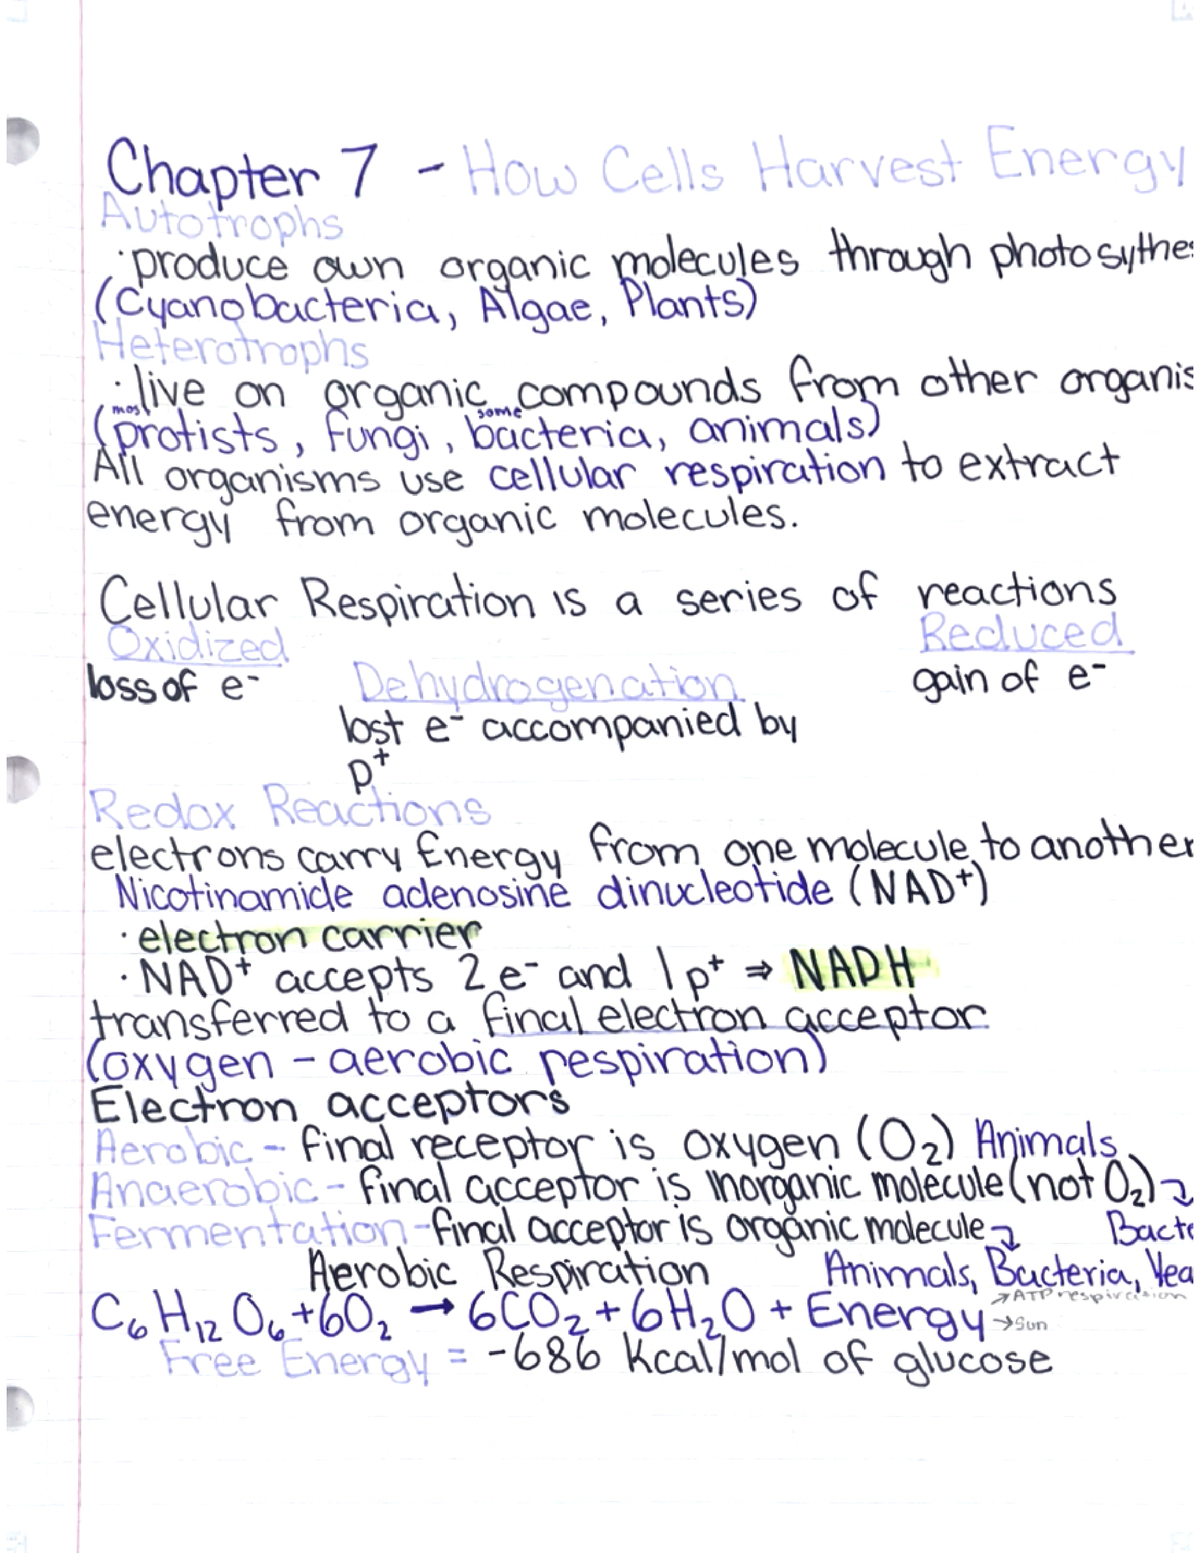 Chapter 7 - How Cells Harvest Energy
Autotrophs
· produce own organic molecules through photosythes
(Cyanobacteria, Algae, Plants)
Heterotrophs
· live on organic compounds from other organis
(most protists, fungi, some bacteria, animals)
All organisms use cellular respiration to extract
energy from organic molecules.
Cellular Respiration is a series of reactions
Oxidized Reduced
loss of e⁻ Dehydrogenation gain of e⁻
lost e⁻ accompanied by
p⁺
Redox Reactions
electrons carry Energy from one molecule to another
Nicotinamide adenosine dinucleotide (NAD⁺)
· electron carrier
· NAD⁺ accepts 2e⁻ and 1p⁺ ⇒ NADH
transferred to a final electron acceptor
(oxygen - aerobic respiration)
Electron acceptors
Aerobic - final receptor is oxygen (O₂) Animals
Anaerobic - final acceptor is inorganic molecule (not O₂)
Fermentation - final acceptor is organic molecule Bacte
Aerobic Respiration Animals, Bacteria, Yea
C₆H₁₂O₆ + 6O₂ → 6CO₂ + 6H₂O + Energy →ATP respiration →Sun
Free Energy = -686 Kcal/mol of glucose